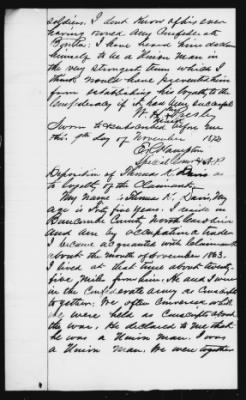 soldiers. I dont know of his ever
having owned any Confederate
Bonds: I have heard him declare
himself to be a Union man in
the very strongest terms which I
think would have prevented him
from establishing his loyalty to the
Confederacy if it had been successful
W. H. Presley
Sworn to & subscribed before me
this 9th day of November 1872
Special Com.
Deposition of Thomas K. Davis as
to loyalty of the Claimant,
My Name is Thomas K. Davis, my
age is forty six years. I reside in
Buncombe County North Carolina
and am by occupation a trader
I became acquainted with Claimant
about the month of November 1863.
I lived at that time about twenty
five miles from him. He and I were
in the Confederate Army as Conscripts
together. We often conversed while
we were held as Conscripts about
the war. He declared to me that
he was a Union man. I was
a Union man. We were together